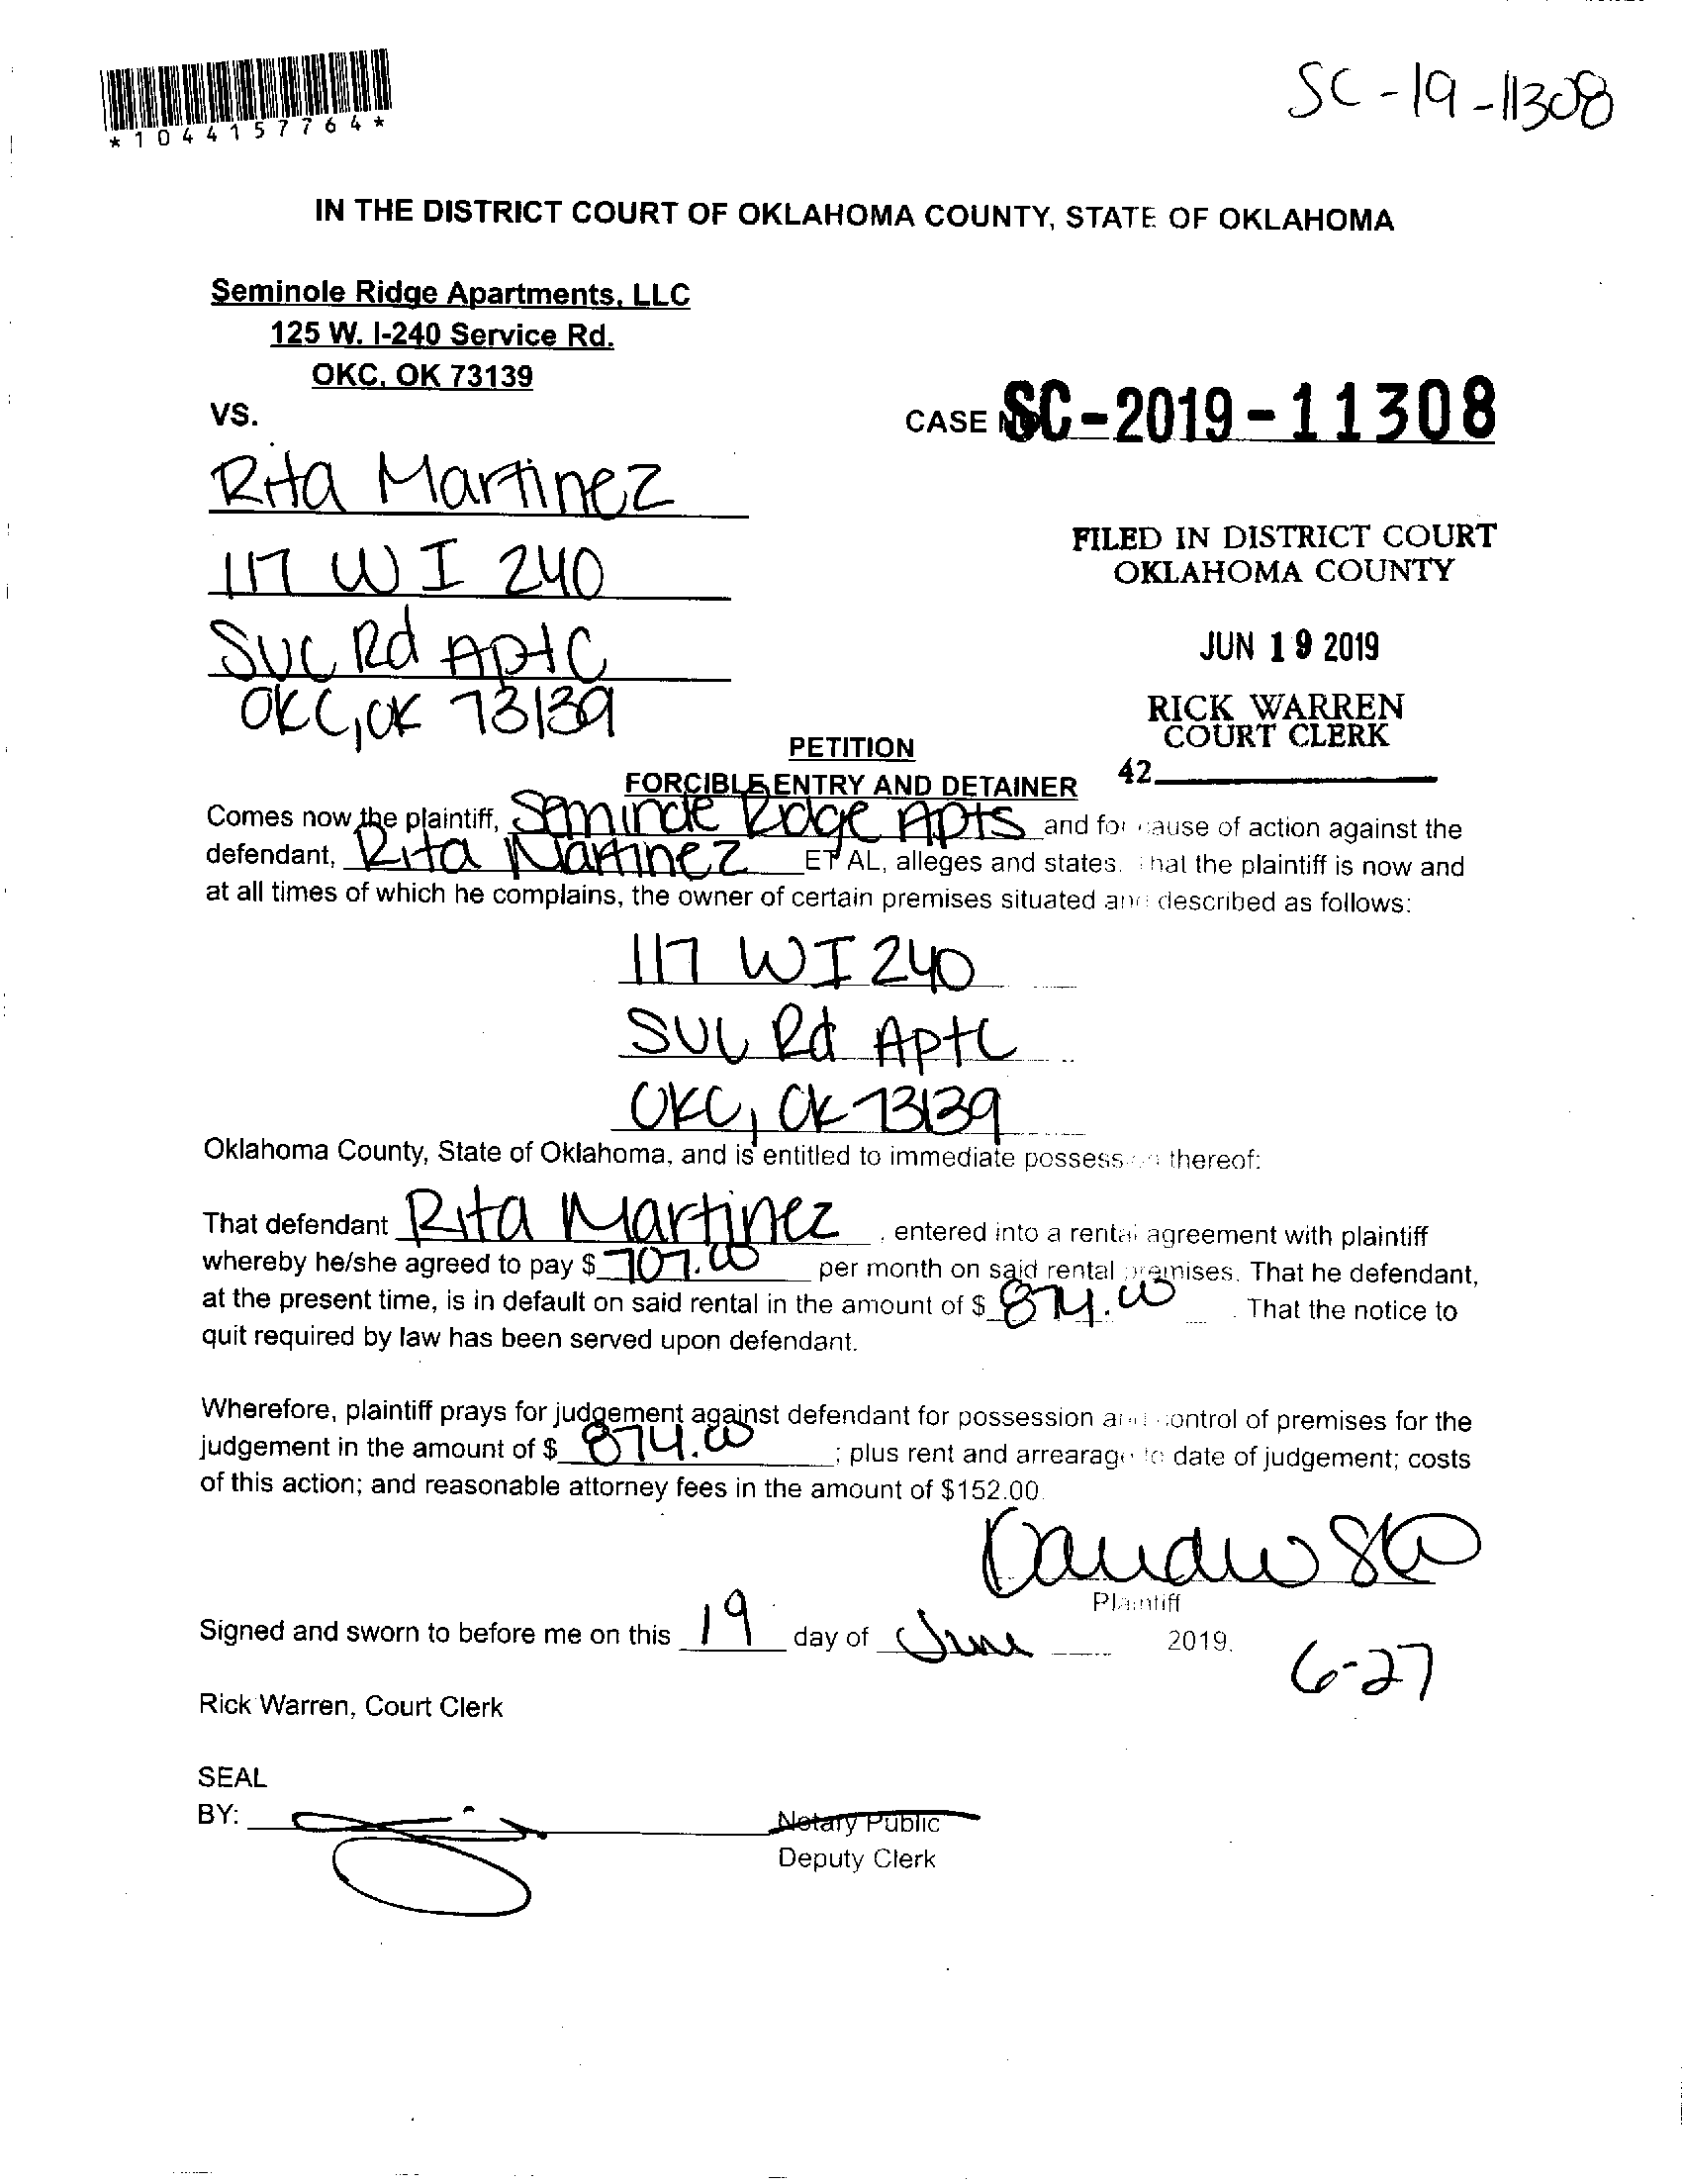 *1044157764*
SC-19-11308
IN THE DISTRICT COURT OF OKLAHOMA COUNTY, STATE OF OKLAHOMA
Seminole Ridge Apartments, LLC
125 W. I-240 Service Rd.
OKC, OK 73139
VS.
CASE SC-2019-11308
Rita Martinez
117 W I 240
SVC Rd Apt C
OKC, OK 73139
FILED IN DISTRICT COURT
OKLAHOMA COUNTY
JUN 19 2019
RICK WARREN
COURT CLERK
42
PETITION
FORCIBLE ENTRY AND DETAINER
Comes now the plaintiff, Seminole Ridge Apts and for cause of action against the
defendant, Rita Martinez ET AL, alleges and states. That the plaintiff is now and
at all times of which he complains, the owner of certain premises situated and described as follows:
117 W I 240
SVC Rd Apt C
OKC, OK 73139
Oklahoma County, State of Oklahoma, and is entitled to immediate possession thereof:
That defendant Rita Martinez, entered into a rental agreement with plaintiff
whereby he/she agreed to pay $ 707.00 per month on said rental premises. That he defendant,
at the present time, is in default on said rental in the amount of $ 874.00. That the notice to
quit required by law has been served upon defendant.
Wherefore, plaintiff prays for judgement against defendant for possession and control of premises for the
judgement in the amount of $ 874.00; plus rent and arrearage to date of judgement; costs
of this action; and reasonable attorney fees in the amount of $152.00.
Plaintiff
Signed and sworn to before me on this 19 day of June 2019.
6-27
Rick Warren, Court Clerk
SEAL
BY:
Notary Public
Deputy Clerk